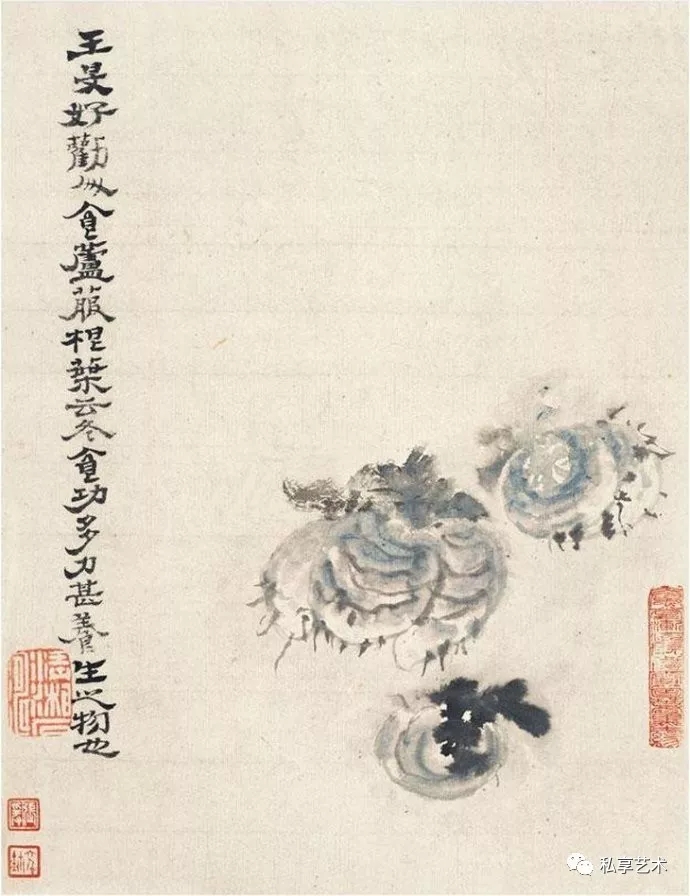 王旻好勸人食蘆菔根葉云冬食功多力甚養生之物也
私享艺术